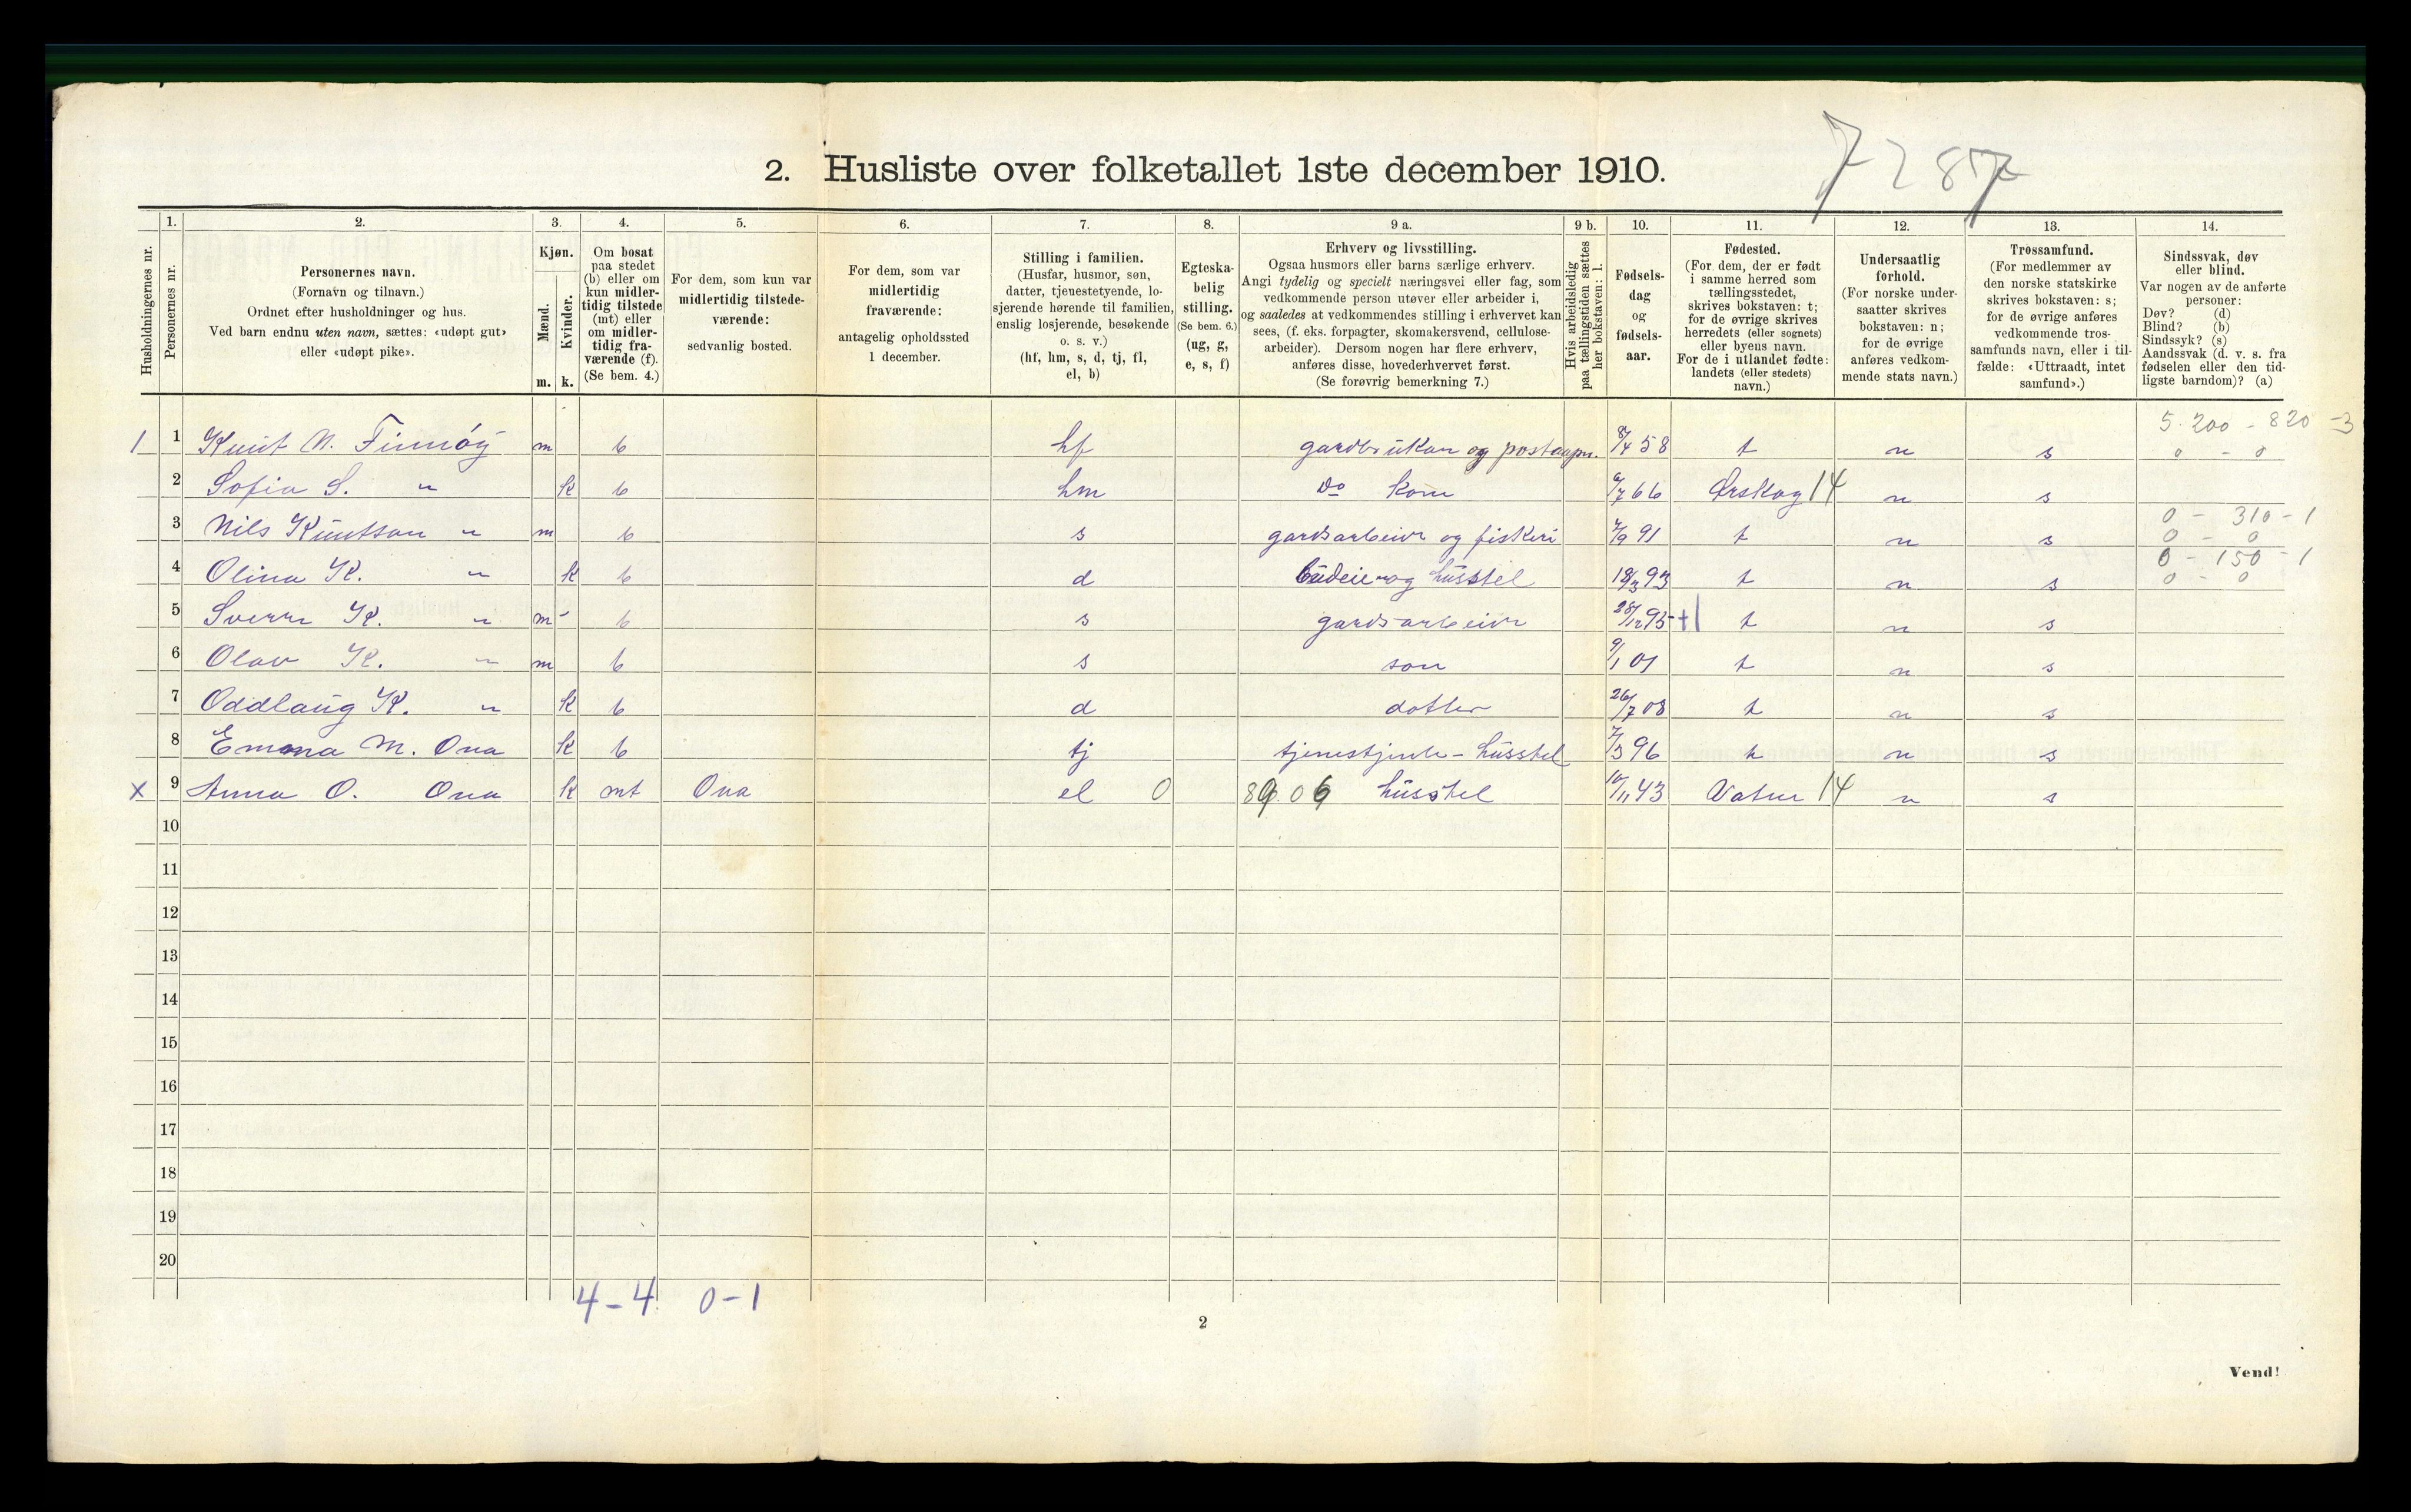 7287
2. Husliste over folketallet 1ste december 1910.
Husholdningernes nr.
1. Personernes nr.
2. Personernes navn.
(Fornavn og tilnavn.)
Ordnet efter husholdninger og hus.
Ved barn endnu uten navn, sættes: «udøpt gut»
eller «udøpt pike».
3. Kjøn.
Mænd. m.
Kvinder. k.
4. Om bosat
paa stedet
(b) eller om
kun midler-
tidig tilstede
(mt) eller
om midler-
tidig fra-
værende (f).
(Se bem. 4.)
5. For dem, som kun var
midlertidig tilstede-
værende:
sedvanlig bosted.
6. For dem, som var
midlertidig
fraværende:
antagelig opholdssted
1 december.
7. Stilling i familien.
(Husfar, husmor, søn,
datter, tjenestetyende, lo-
sjerende hørende til familien,
enslig losjerende, besøkende
o. s. v.)
(hf, hm, s, d, tj, fl,
el, b)
8. Egteska-
belig
stilling.
(Se bem. 6.)
(ug, g,
e, s, f)
9 a. Erhverv og livsstilling.
Ogsaa husmors eller barns særlige erhverv.
Angi tydelig og specielt næringsvei eller fag, som
vedkommende person utøver eller arbeider i,
og saaledes at vedkommendes stilling i erhvervet kan
sees, (f. eks. forpagter, skomakersvend, cellulose-
arbeider). Dersom nogen har flere erhverv,
anføres disse, hovederhvervet først.
(Se forøvrig bemerkning 7.)
9 b. Hvis arbeidsledig
paa tællingstiden sættes
her bokstaven: l.
10. Fødsels-
dag
og
fødsels-
aar.
11. Fødested.
(For dem, der er født
i samme herred som
tællingsstedet,
skrives bokstaven: t;
for de øvrige skrives
herredets (eller sognets)
eller byens navn.
For de i utlandet fødte:
landets (eller stedets)
navn.)
12. Undersaatlig
forhold.
(For norske under-
saatter skrives
bokstaven: n;
for de øvrige
anføres vedkom-
mende stats navn.)
13. Trossamfund.
(For medlemmer av
den norske statskirke
skrives bokstaven: s;
for de øvrige anføres
vedkommende tros-
samfunds navn, eller i til-
fælde: «Uttraadt, intet
samfund».)
14. Sindssvak, døv
eller blind.
Var nogen av de anførte
personer:
Døv? (d)
Blind? (b)
Sindssyk? (s)
Aandssvak (d. v. s. fra
fødselen eller den tid-
ligste barndom)? (a)
5.200 - 820 -3
1 1 Knut N. Finnøy m b hf gardbrukar og postaapn. 8/4 58 t n s 0 - 0
2 Sofia S. " k b hm Do kone 6/7 66 Ørskog 14 n s
0 - 310 - 1
3 Nils Knutson " m b s gardsarbeide og fiskeri 7/9 91 t n s 0 - 0
0 - 150 - 1
4 Olina K. " k b d budeie og husstel 18/3 93 t n s 0 - 0
5 Sverre K. " m b s gardsarbeide 28/12 95 +1 t n s
6 Olav K. " m b s son 9/1 01 t n s
7 Oddlaug K. " k b d dotter 26/7 08 t n s
8 Emma M. Ona k b tj tjenestjente - husstel 7/3 96 t n s
x 9 Anna O. Ona k mt Ona el 0 husstel 10/11 43 Vatne 14 n s
10
11
12
13
14
15
16
17
18
19
20
4 - 4 0 - 1
2
Vend!